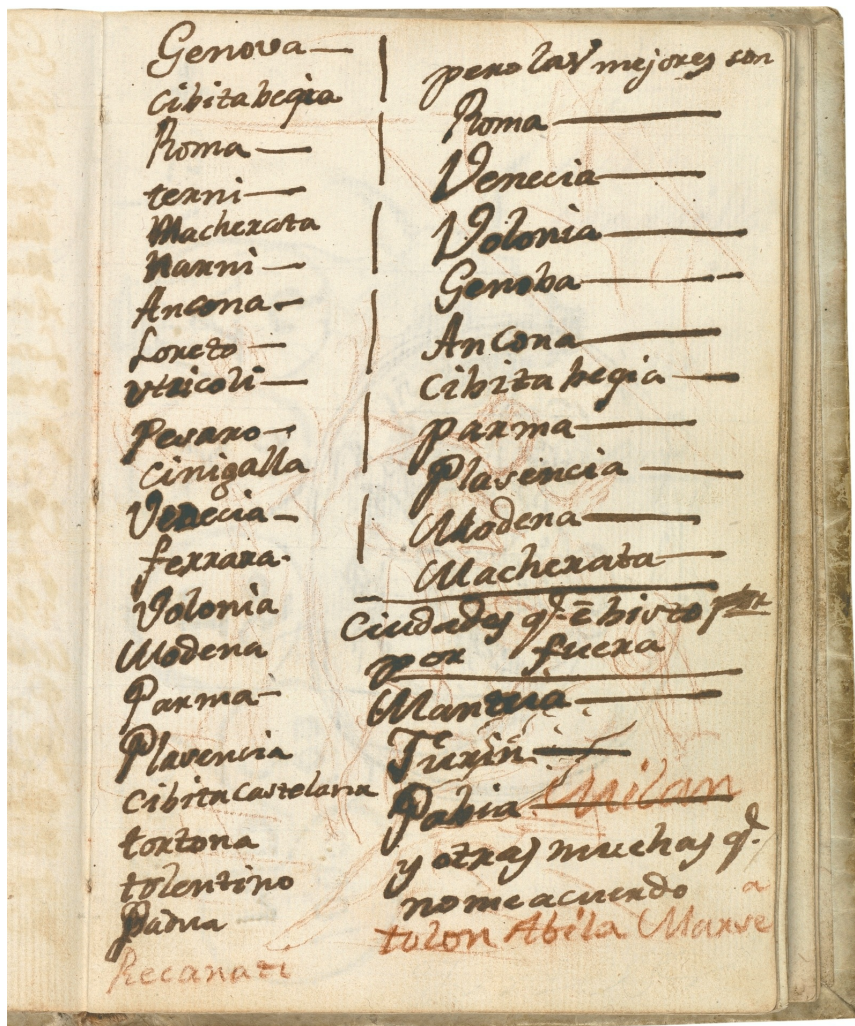 Genova
cibitabegia
Roma
terni
Macherata
Narni
Ancona
Loreto
vtricoli
Pesaro
cinigalla
Venecia
ferrara
Volonia
Modena
Parma
Plasencia
cibita castelana
tortona
tolentino
Padua
Recanati
pero las mejores son
Roma
Venecia
Volonia
Genoba
Ancona
cibita begia
parma
Plasencia
Modena
Macherata
Ciudades q.e e bisto
por fuera
Mantua
Turin
Pabia Milan
y otras muchas q.e
no me acuerdo
tolon Abila Marse
a